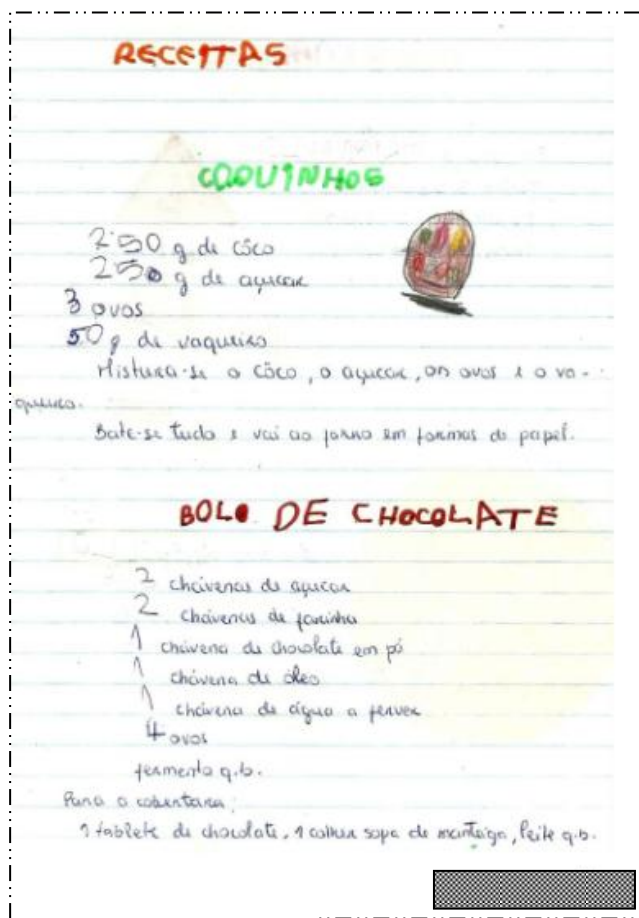 RECEITAS
COQUINHOS
250 g de côco
250 g de açucar
3 ovos
50 g de vaqueiro
Mistura-se o côco, o açucar, os ovos e o va-
queiro.
Bate-se tudo e vai ao forno em formas de papel.
BOLO DE CHOCOLATE
2 chávenas de açucar
2 chávenas de farinha
1 chávena de chocolate em pó
1 chávena de óleo
1 chávena de água a ferver
4 ovos
fermento q.b.
Para a cobertura:
1 tablete de chocolate, 1 colher sopa de manteiga, leite q.b.